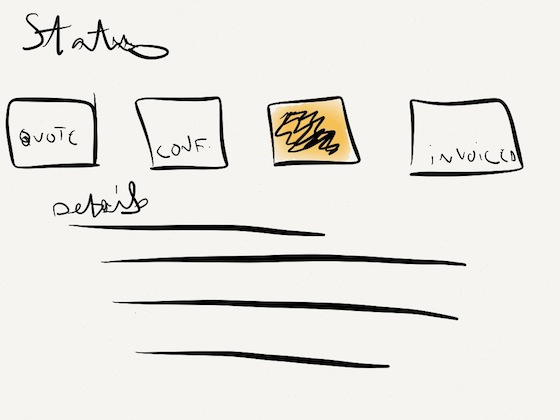 Status
QUOTE CONF. INVOICED
Details